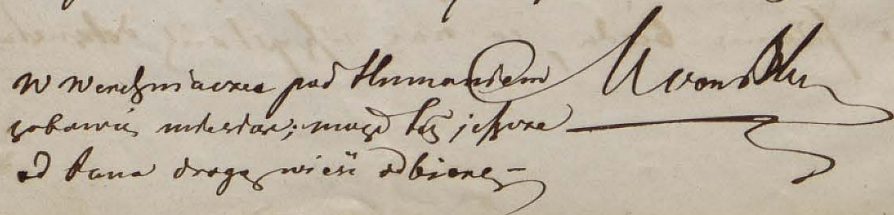 W Werchniaczce pod Humaniem
zabawię miesiąc; mogę tą jeszcze
od Pana drogą wieść odbierę –